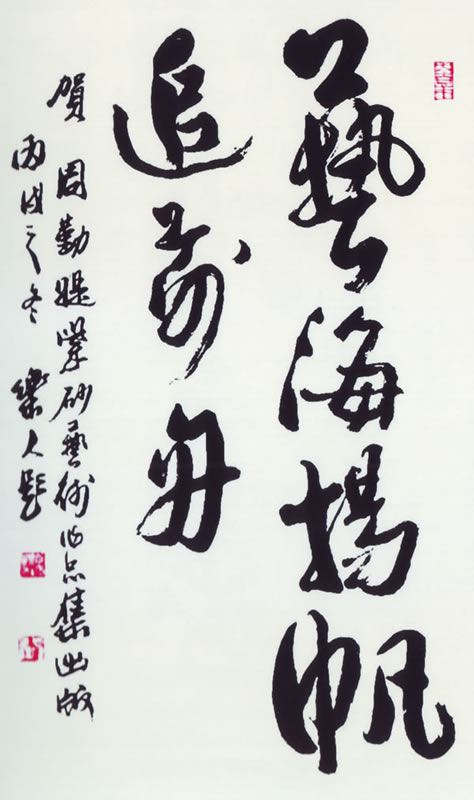 藝海揚帆
追前舟
賀 周勤紫砂藝術作品集出版
丙戌之冬 樂人題